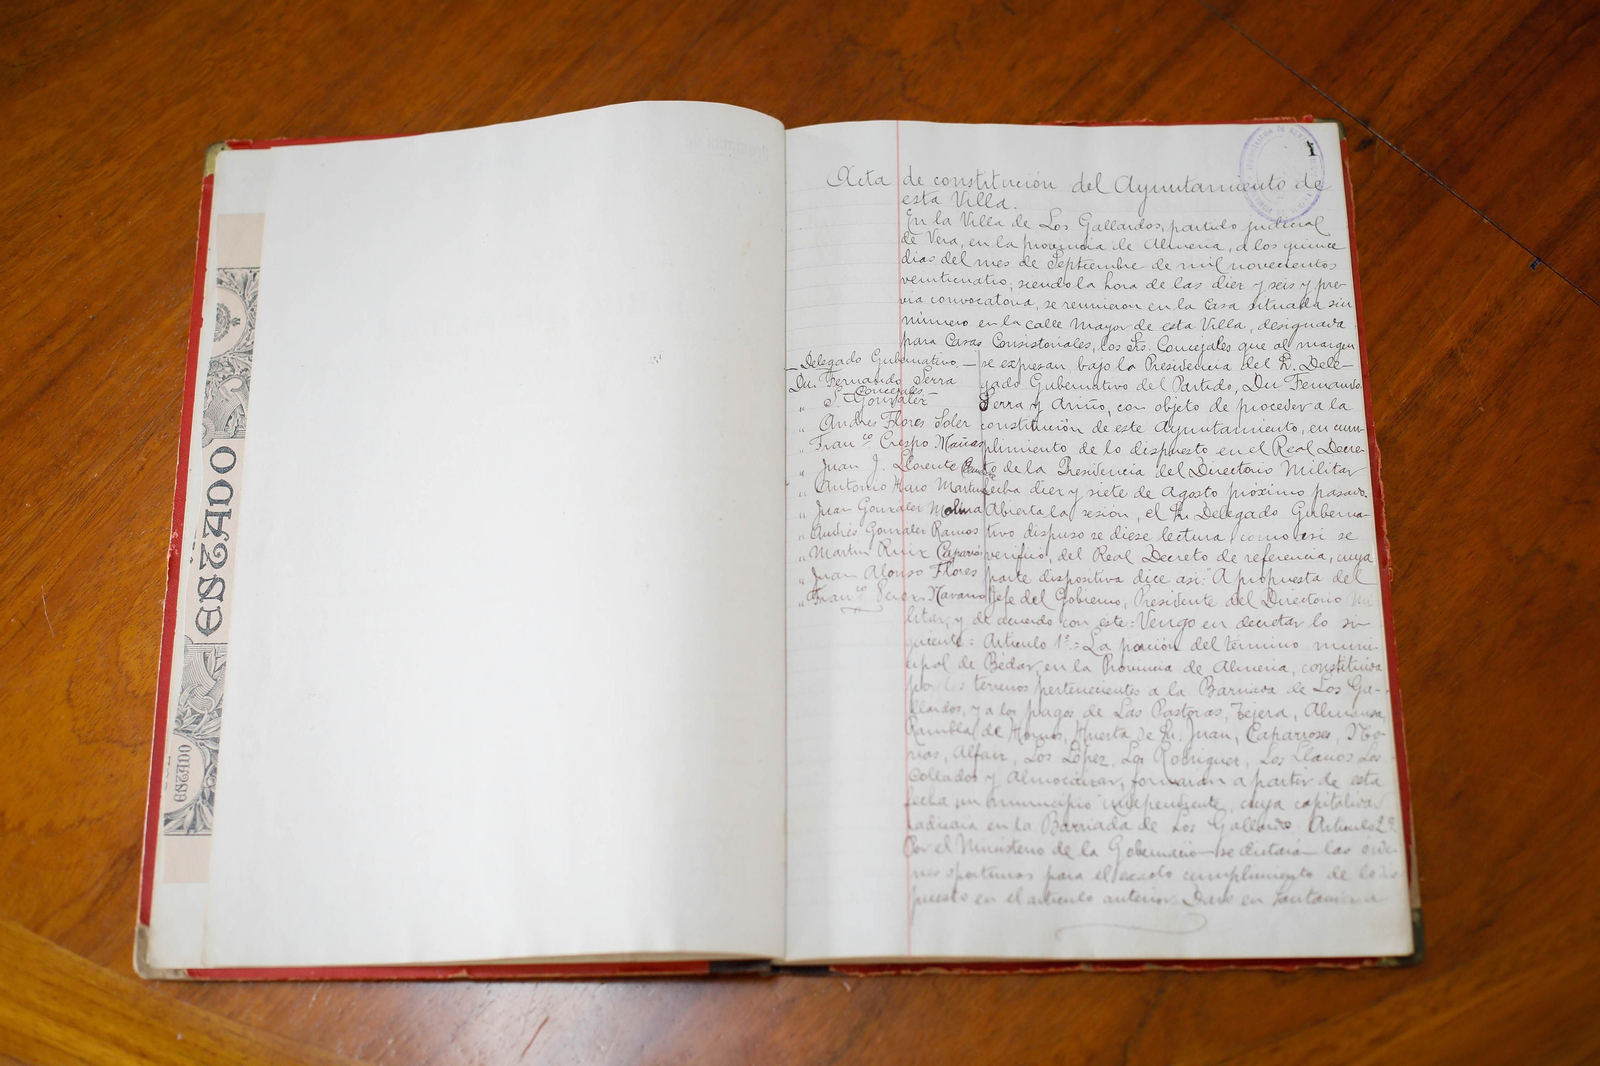 ESTADO
1
Acta de constitución del Ayuntamiento de
esta Villa.
En la Villa de Los Gallardos, partido judicial
de Vera, en la provincia de Almeria, a los quince
dias del mes de Septiembre de mil novecientos
veinticuatro, siendo la hora de las diez y seis y pre-
via convocatoria, se reunieron en la Casa situada sin
número en la calle Mayor de esta Villa, designada
para Casas Consistoriales, los Srs. Concejales que al margen
Delegado Gubernativo.
Dn. Fernando Serra
Concejales
González
" Andrés Flores Soler
" Franco Crespo Mañas
" Juan J. Llorente
" Antonio Haro Martinez
" Juan González Molina
" Andrés González Ramos
" Martin Ruiz Caparrós
" Juan Alonso Flores
" Franco Navarro
se expresan, bajo la Presidencia del Sr. Dele-
gado Gubernativo del Partido, Dn Fernando
Serra y Ariño, con objeto de proceder a la
constitución de este Ayuntamiento, en cum-
plimiento de lo dispuesto en el Real Decre-
to de la Presidencia del Directorio Militar
fecha diez y siete de Agosto próximo pasado.
Abierta la sesión, el Sr. Delegado Guberna-
tivo dispuso se diese lectura, como asi se
verificó, del Real Decreto de referencia, cuya
parte dispositiva dice asi: "A propuesta del
Jefe del Gobierno, Presidente del Directorio Mi
litar, y de acuerdo con este: Vengo en decretar lo si-
guiente: Articulo 1º: La porción del término muni-
cipal de Bédar, en la Provincia de Almeria, constituida
por los terrenos pertenecientes a la Barriada de Los Ga-
llardos, y a los pagos de Las Pastoras, Tejera, Almensa,
Rambla de Honos, Huerta de Dn. Juan, Caparroses, No-
rias, Alfaix, Los López, Los Rodriguez, Los Llanos Los
Collados y Almocáizar, formarán a partir de esta
fecha un municipio independiente, cuya capitalidad
radicará en la Barriada de Los Gallardos. Articulo 2º
Por el Ministerio de la Gobernación se dictarán las orde-
nes oportunas para el exacto cumplimiento de lo dis
puesto en el articulo anterior. Dado en Santander a